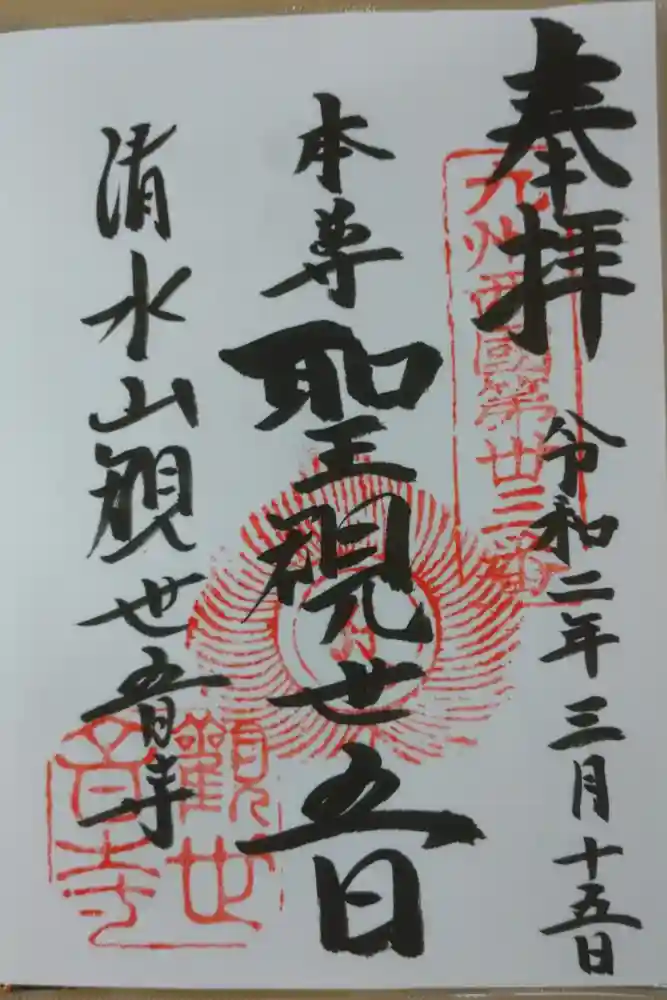 奉拝
令和二年三月十五日
九州西國第卅三番
本尊聖観世音
清水山観世音寺
觀世
音寺